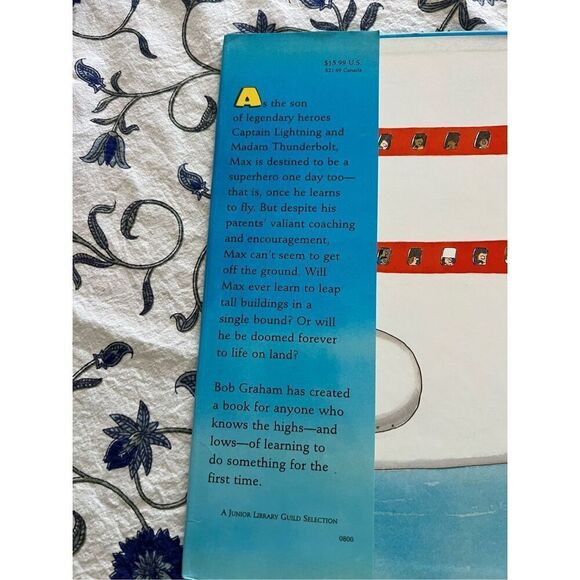 $15.99 U.S.
$21.99 Canada
As the son
of legendary heroes
Captain Lightning and
Madam Thunderbolt,
Max is destined to be a
superhero one day too—
that is, once he learns
to fly. But despite his
parents' valiant coaching
and encouragement,
Max can't seem to get
off the ground. Will
Max ever learn to leap
tall buildings in a
single bound? Or will
he be doomed forever
to life on land?
Bob Graham has created
a book for anyone who
knows the highs—and
lows—of learning to
do something for the
first time.
A Junior Library Guild Selection
0800